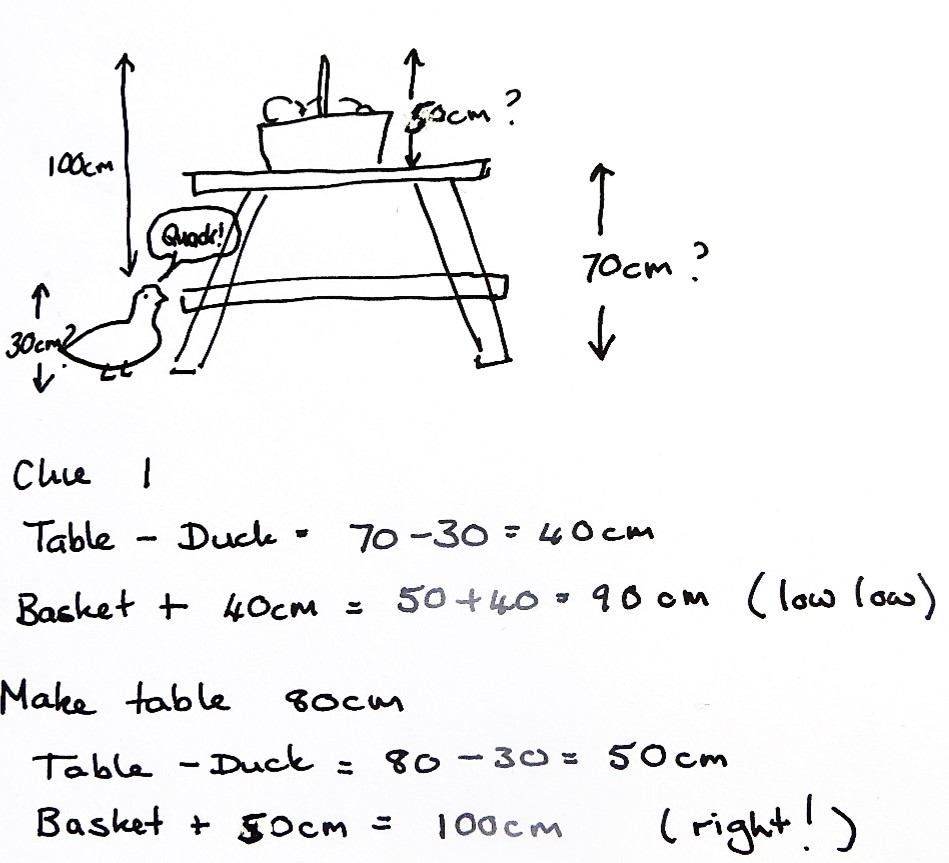 50cm ?
100cm
Quack!
70cm ?
30cm?
Clue 1
Table - Duck = 70 - 30 = 40cm
Basket + 40cm = 50 + 40 = 90 cm (low low)
Make table 80cm
Table - Duck = 80 - 30 = 50cm
Basket + 50cm = 100cm (right!)